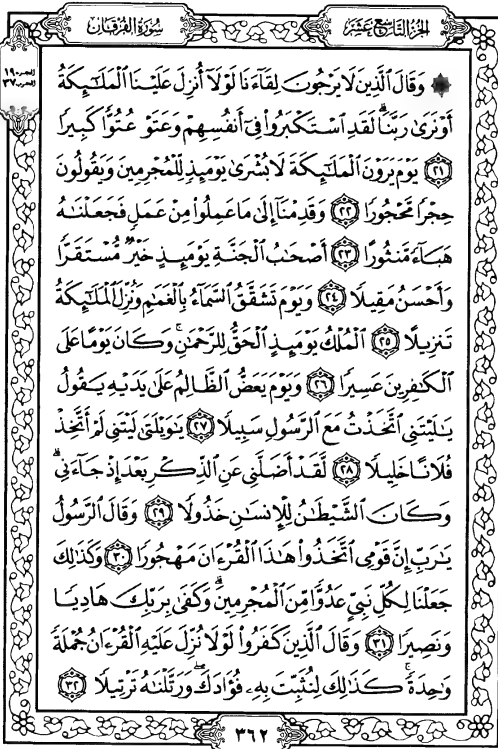 سُورَةُ الفُرْقَانِ
الجُزْءُ التَّاسِعَ عَشَرَ
۞ وَقَالَ ٱلَّذِينَ لَا يَرْجُونَ لِقَآءَنَا لَوْلَآ أُنزِلَ عَلَيْنَا ٱلْمَلَٰٓئِكَةُ
أَوْ نَرَىٰ رَبَّنَا ۗ لَقَدِ ٱسْتَكْبَرُوا۟ فِىٓ أَنفُسِهِمْ وَعَتَوْ عُتُوًّا كَبِيرًا
﴿٢١﴾ يَوْمَ يَرَوْنَ ٱلْمَلَٰٓئِكَةَ لَا بُشْرَىٰ يَوْمَئِذٍ لِّلْمُجْرِمِينَ وَيَقُولُونَ
حِجْرًا مَّحْجُورًا ﴿٢٢﴾ وَقَدِمْنَآ إِلَىٰ مَا عَمِلُوا۟ مِنْ عَمَلٍ فَجَعَلْنَٰهُ
هَبَآءً مَّنثُورًا ﴿٢٣﴾ أَصْحَٰبُ ٱلْجَنَّةِ يَوْمَئِذٍ خَيْرٌ مُّسْتَقَرًّا
وَأَحْسَنُ مَقِيلًا ﴿٢٤﴾ وَيَوْمَ تَشَقَّقُ ٱلسَّمَآءُ بِٱلْغَمَٰمِ وَنُزِّلَ ٱلْمَلَٰٓئِكَةُ
تَنزِيلًا ﴿٢٥﴾ ٱلْمُلْكُ يَوْمَئِذٍ ٱلْحَقُّ لِلرَّحْمَٰنِ ۚ وَكَانَ يَوْمًا عَلَى
ٱلْكَٰفِرِينَ عَسِيرًا ﴿٢٦﴾ وَيَوْمَ يَعَضُّ ٱلظَّالِمُ عَلَىٰ يَدَيْهِ يَقُولُ
يَٰلَيْتَنِى ٱتَّخَذْتُ مَعَ ٱلرَّسُولِ سَبِيلًا ﴿٢٧﴾ يَٰوَيْلَتَىٰ لَيْتَنِى لَمْ أَتَّخِذْ
فُلَانًا خَلِيلًا ﴿٢٨﴾ لَّقَدْ أَضَلَّنِى عَنِ ٱلذِّكْرِ بَعْدَ إِذْ جَآءَنِى ۗ
وَكَانَ ٱلشَّيْطَٰنُ لِلْإِنسَٰنِ خَذُولًا ﴿٢٩﴾ وَقَالَ ٱلرَّسُولُ
يَٰرَبِّ إِنَّ قَوْمِى ٱتَّخَذُوا۟ هَٰذَا ٱلْقُرْءَانَ مَهْجُورًا ﴿٣٠﴾ وَكَذَٰلِكَ
جَعَلْنَا لِكُلِّ نَبِىٍّ عَدُوًّا مِّنَ ٱلْمُجْرِمِينَ ۗ وَكَفَىٰ بِرَبِّكَ هَادِيًا
وَنَصِيرًا ﴿٣١﴾ وَقَالَ ٱلَّذِينَ كَفَرُوا۟ لَوْلَا نُزِّلَ عَلَيْهِ ٱلْقُرْءَانُ جُمْلَةً
وَٰحِدَةً ۚ كَذَٰلِكَ لِنُثَبِّتَ بِهِۦ فُؤَادَكَ ۖ وَرَتَّلْنَٰهُ تَرْتِيلًا ﴿٣٢﴾
٣٦٢